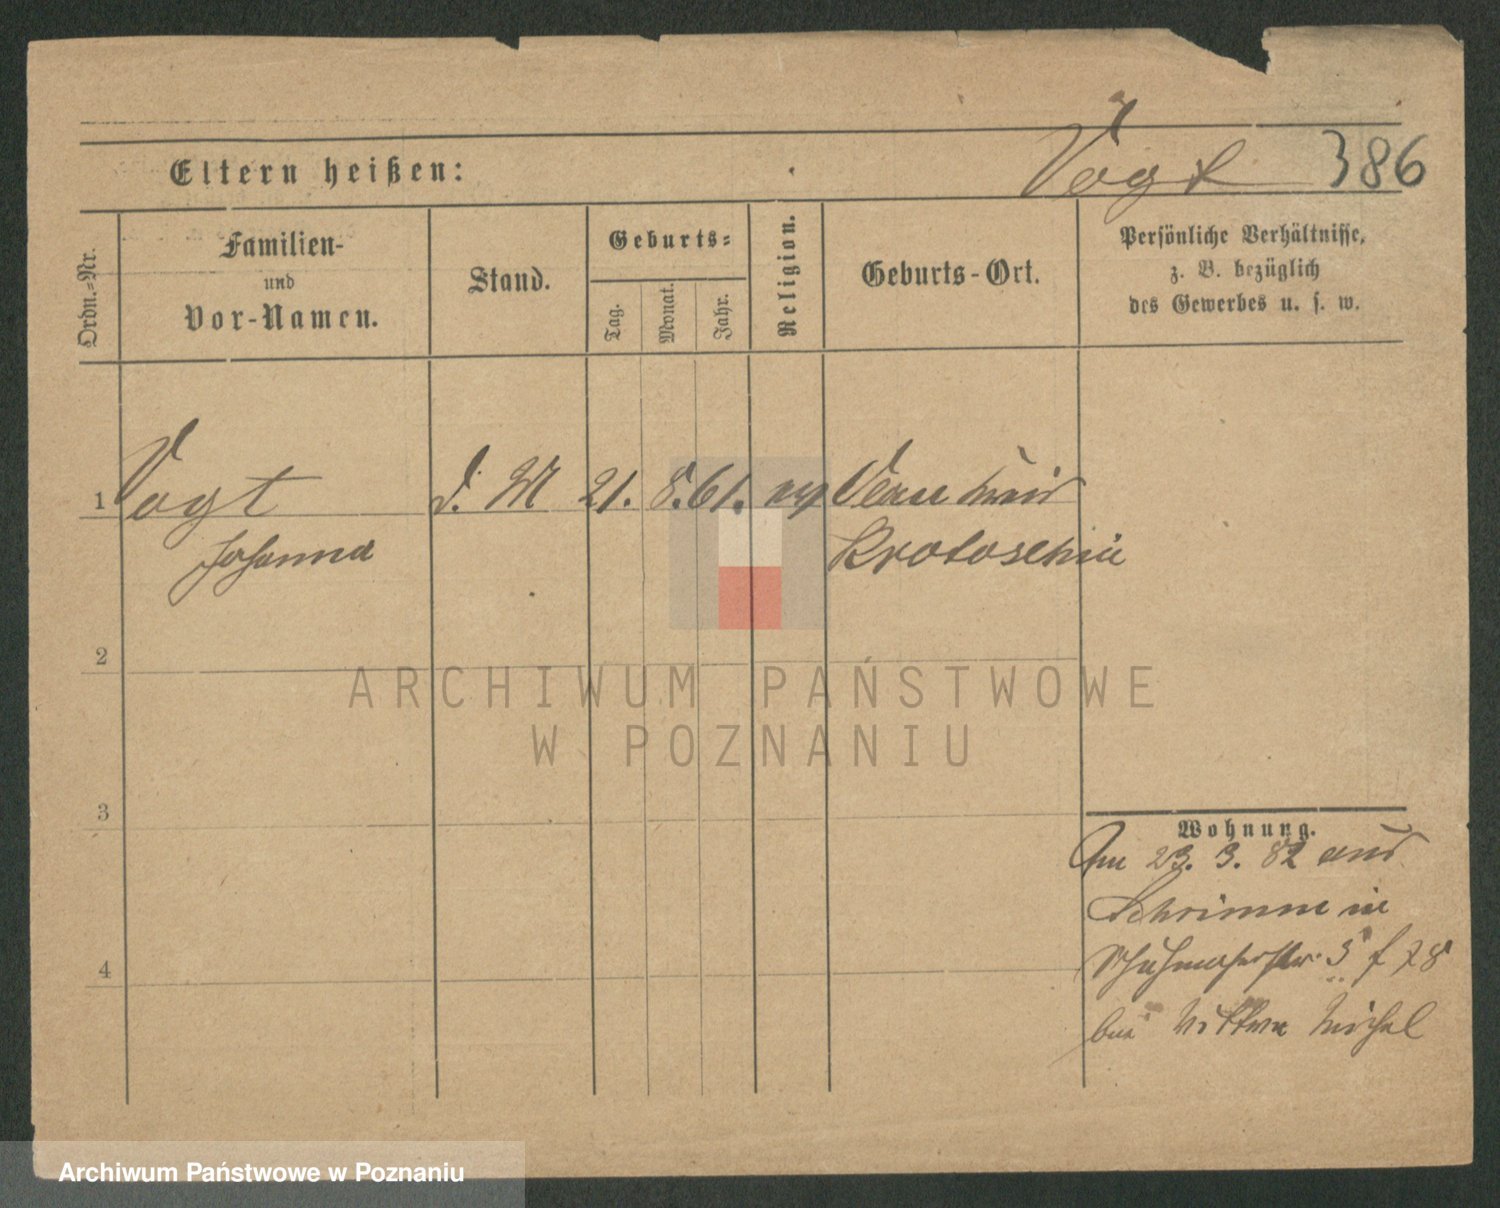 Vogt 386
Eltern heißen:
Ordn.-Nr.
Familien-
und
Vor-Namen.
Stand.
Geburts-
Tag.
Monat.
Jahr.
Religion.
Geburts-Ort.
Persönliche Verhältnisse,
z. B. bezüglich
des Gewerbes u. s. w.
1 Vogt D. M 21. 8. 61.
Johanna
Krotoschin
2
3
4
ARCHIWUM PAŃSTWOWE
W POZNANIU
Wohnung.
Am 23. 3. 82 aus
Schrimm in
Schuhmacherstr. 3
bei Wittwe Michel
Archiwum Państwowe w Poznaniu